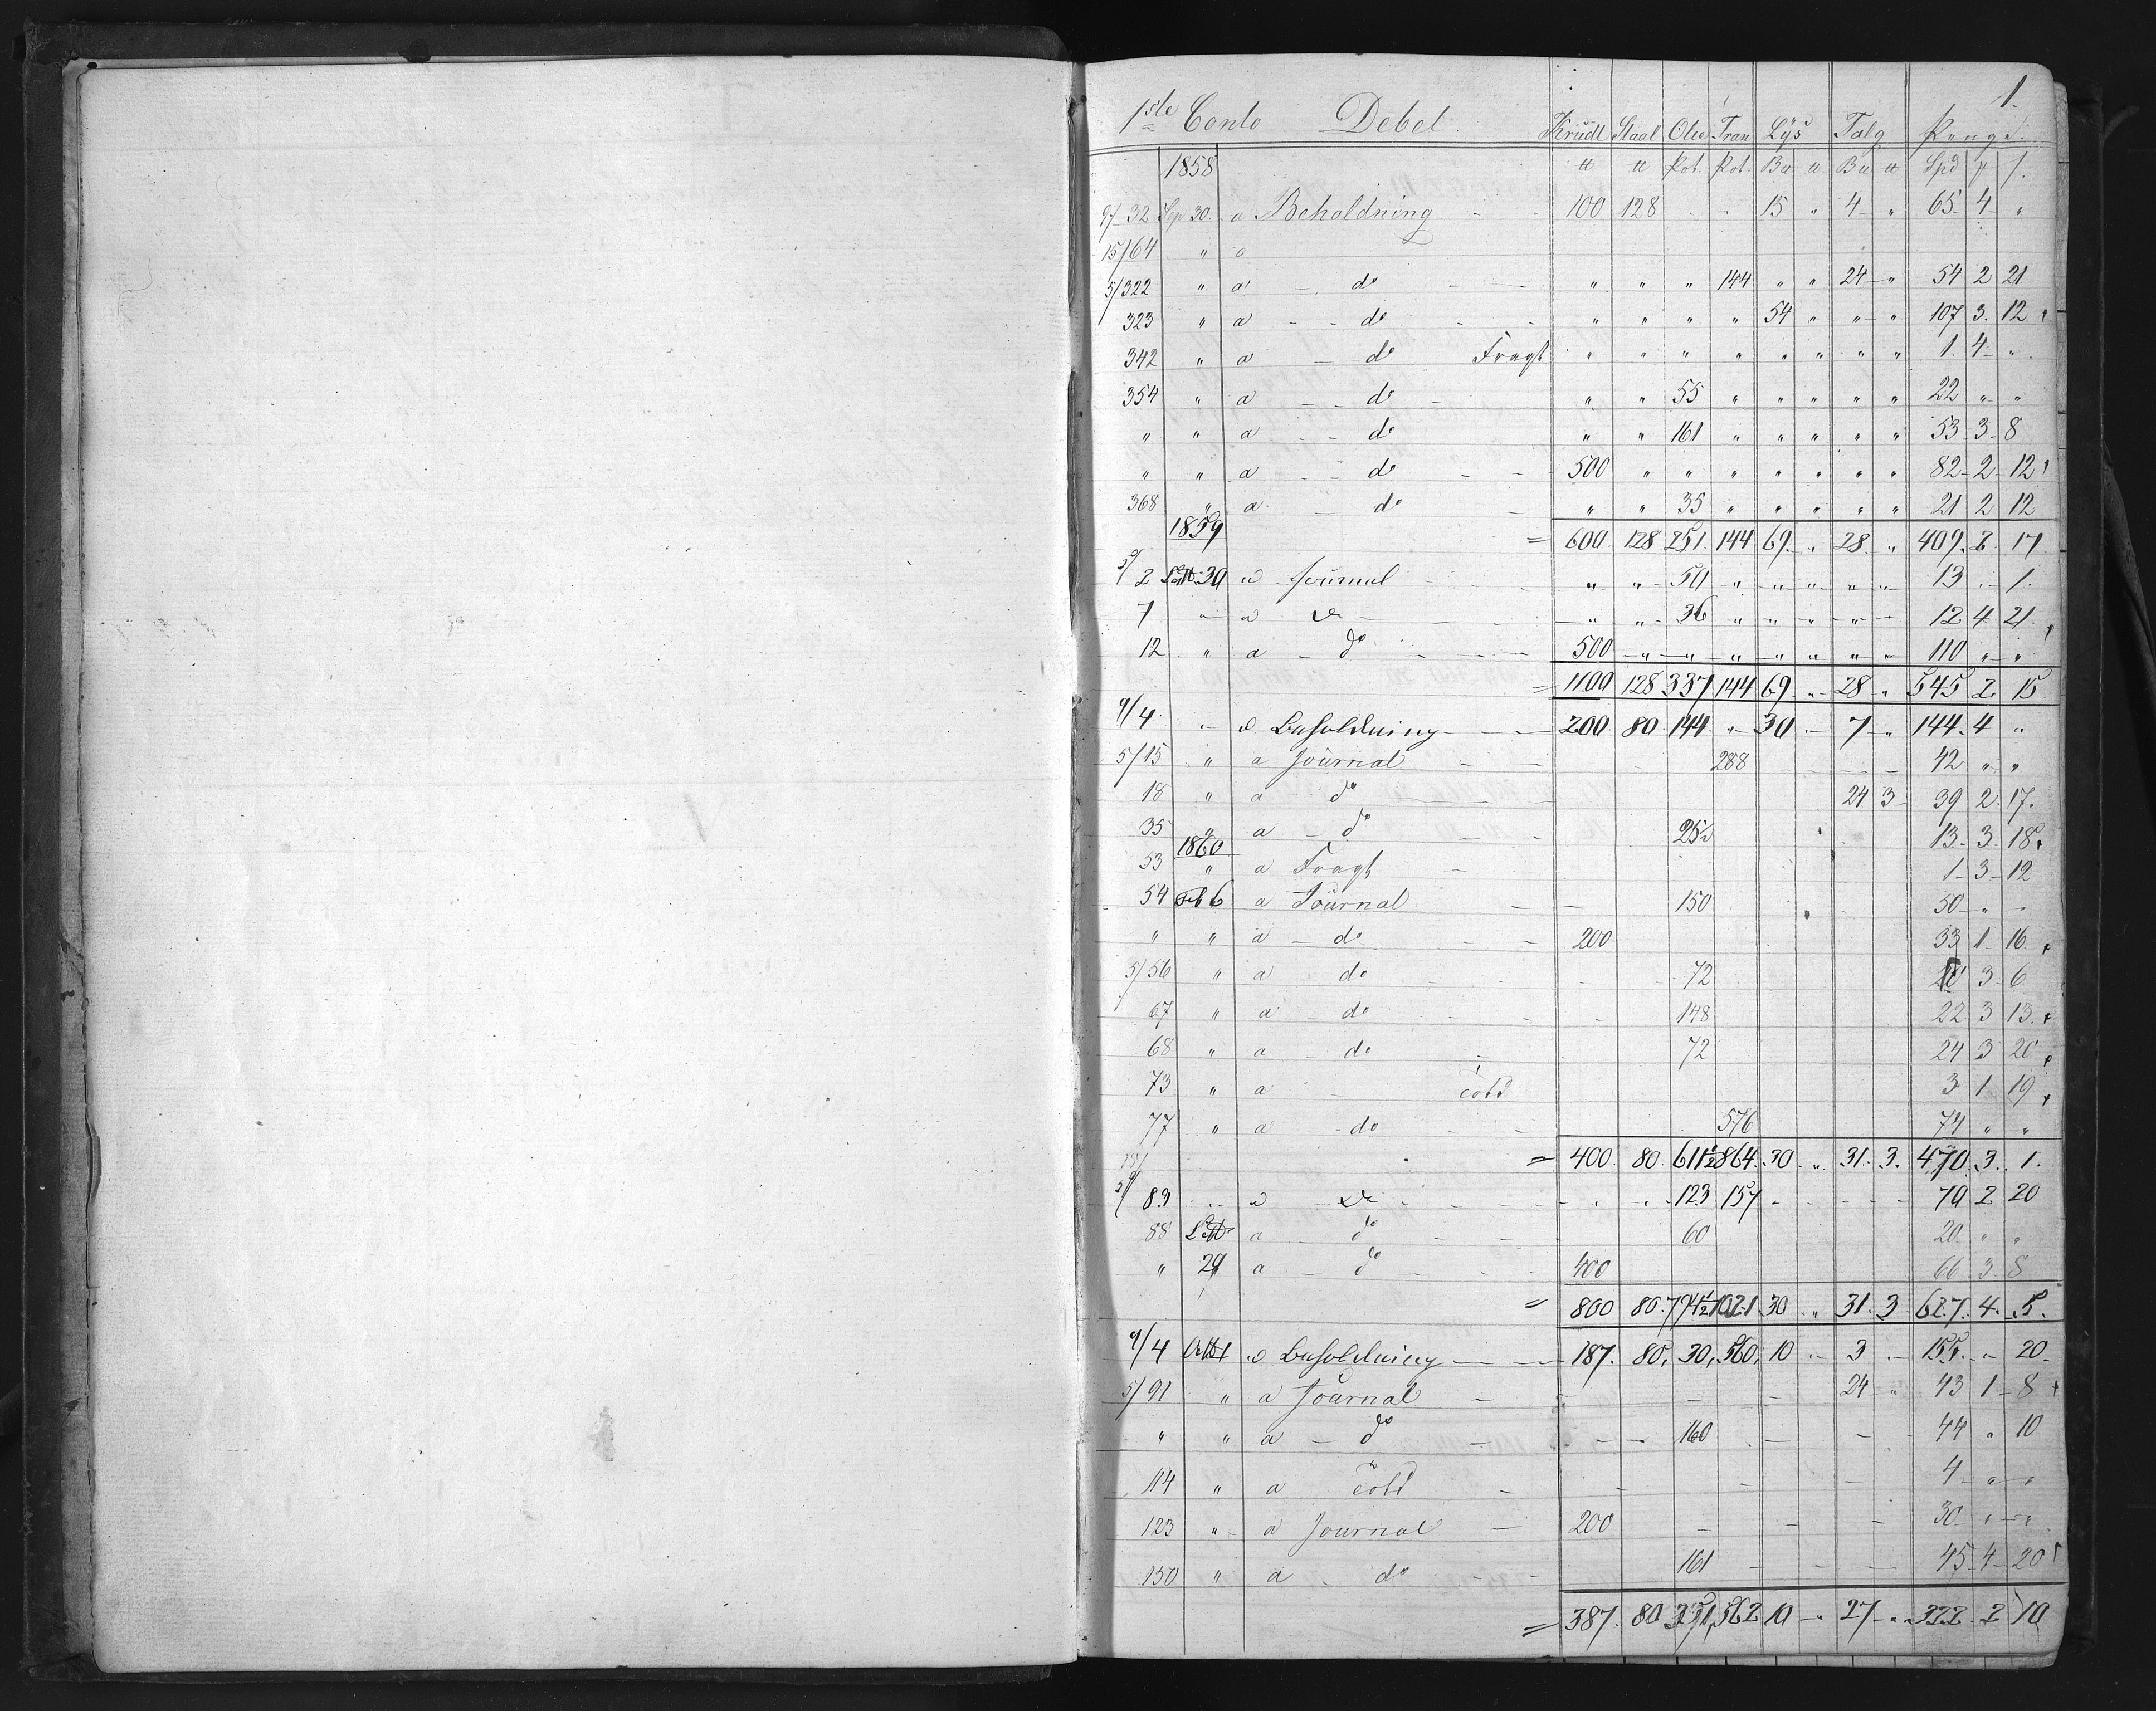 1.
1ste Conto Debet. Krudt Staal Olie Tran Lys Talg Penge.
1858 ℔ ℔ Pot. Pot. Bu ℔ Bu ℔ Spd ƒ ſ.
9/32 Sep 30. a Beholdning - - 100 128 - - 15 " 4 " 65 4 "
15/64 " a
5/322 " a - do - - " " " 144 " " 24 " 54 2 21
323 " a - - do - - " " " " 54 " " " 107 3. 12
342 " a - do Fragt " " " " " " " " 1. 4 "
354 " a - - do - " " 55 " " " " " 22 " "
" " a - - do " " 161 " " " " " 53 3 8
" " a - - do - - 500 " " " " " " " 82 2 12
368 " a - do - " " 35 " " " " " 21 2 12
1859 = 600 128 251. 144 69. " 28. " 409. 2. 17.
5/2 30 a Journal " " 50 " " " " " 13 - 1.
7 " a do " " 36 " " " " " 12 4 21.
12 " a - do - - - 500 " " " " " " " 110 " "
= 1100 128 337 144 69 " 28 " 545 2. 15
9/4 " a Beholdning - - 200 80 144 " 30 - 7 " 144. 4 "
5/15 " a Journal - - 288 42 " "
18 " a do 24 3 39 2. 17.
35 " a - do 25½ 13. 3. 18.
1860
53 " a Fragt - 1 3 12
54 Feb 6 a Journal - - 150 50 " -
" " a - do - - 200 33 1 16
5/56 " a - do - 72 3 6
67 " a - do - - 148 22 3 13.
68 " a - do - 72 24 3 20
73 " a - Told 3 1 19
77 " a - do - 576 74 " "
= 400. 80. 611½ 864. 30 " 31. 3. 470. 3. 1.
5/83 " a do - 123 157 - 70 2 20
88 a do - 60 20 " "
" 29 a - do - 400 66 3 8
= 800 80. 794½ 1021. 30 " 31. 3 627. 4. 5.
9/4 a Beholdning - - 187. 80. 30, 560, 10 " 3 - 155. " 20.
5/91 " a Journal - 24 " 43 1 8
" " a - do - - 160 - 44 " 10
114 " a Told - 4 " "
123 " a Journal - 200 - 30 " "
150 " a - do - - 161 - 45 4 20
= 387. 80 351, 562 10 - " 27 " 322. 2 10